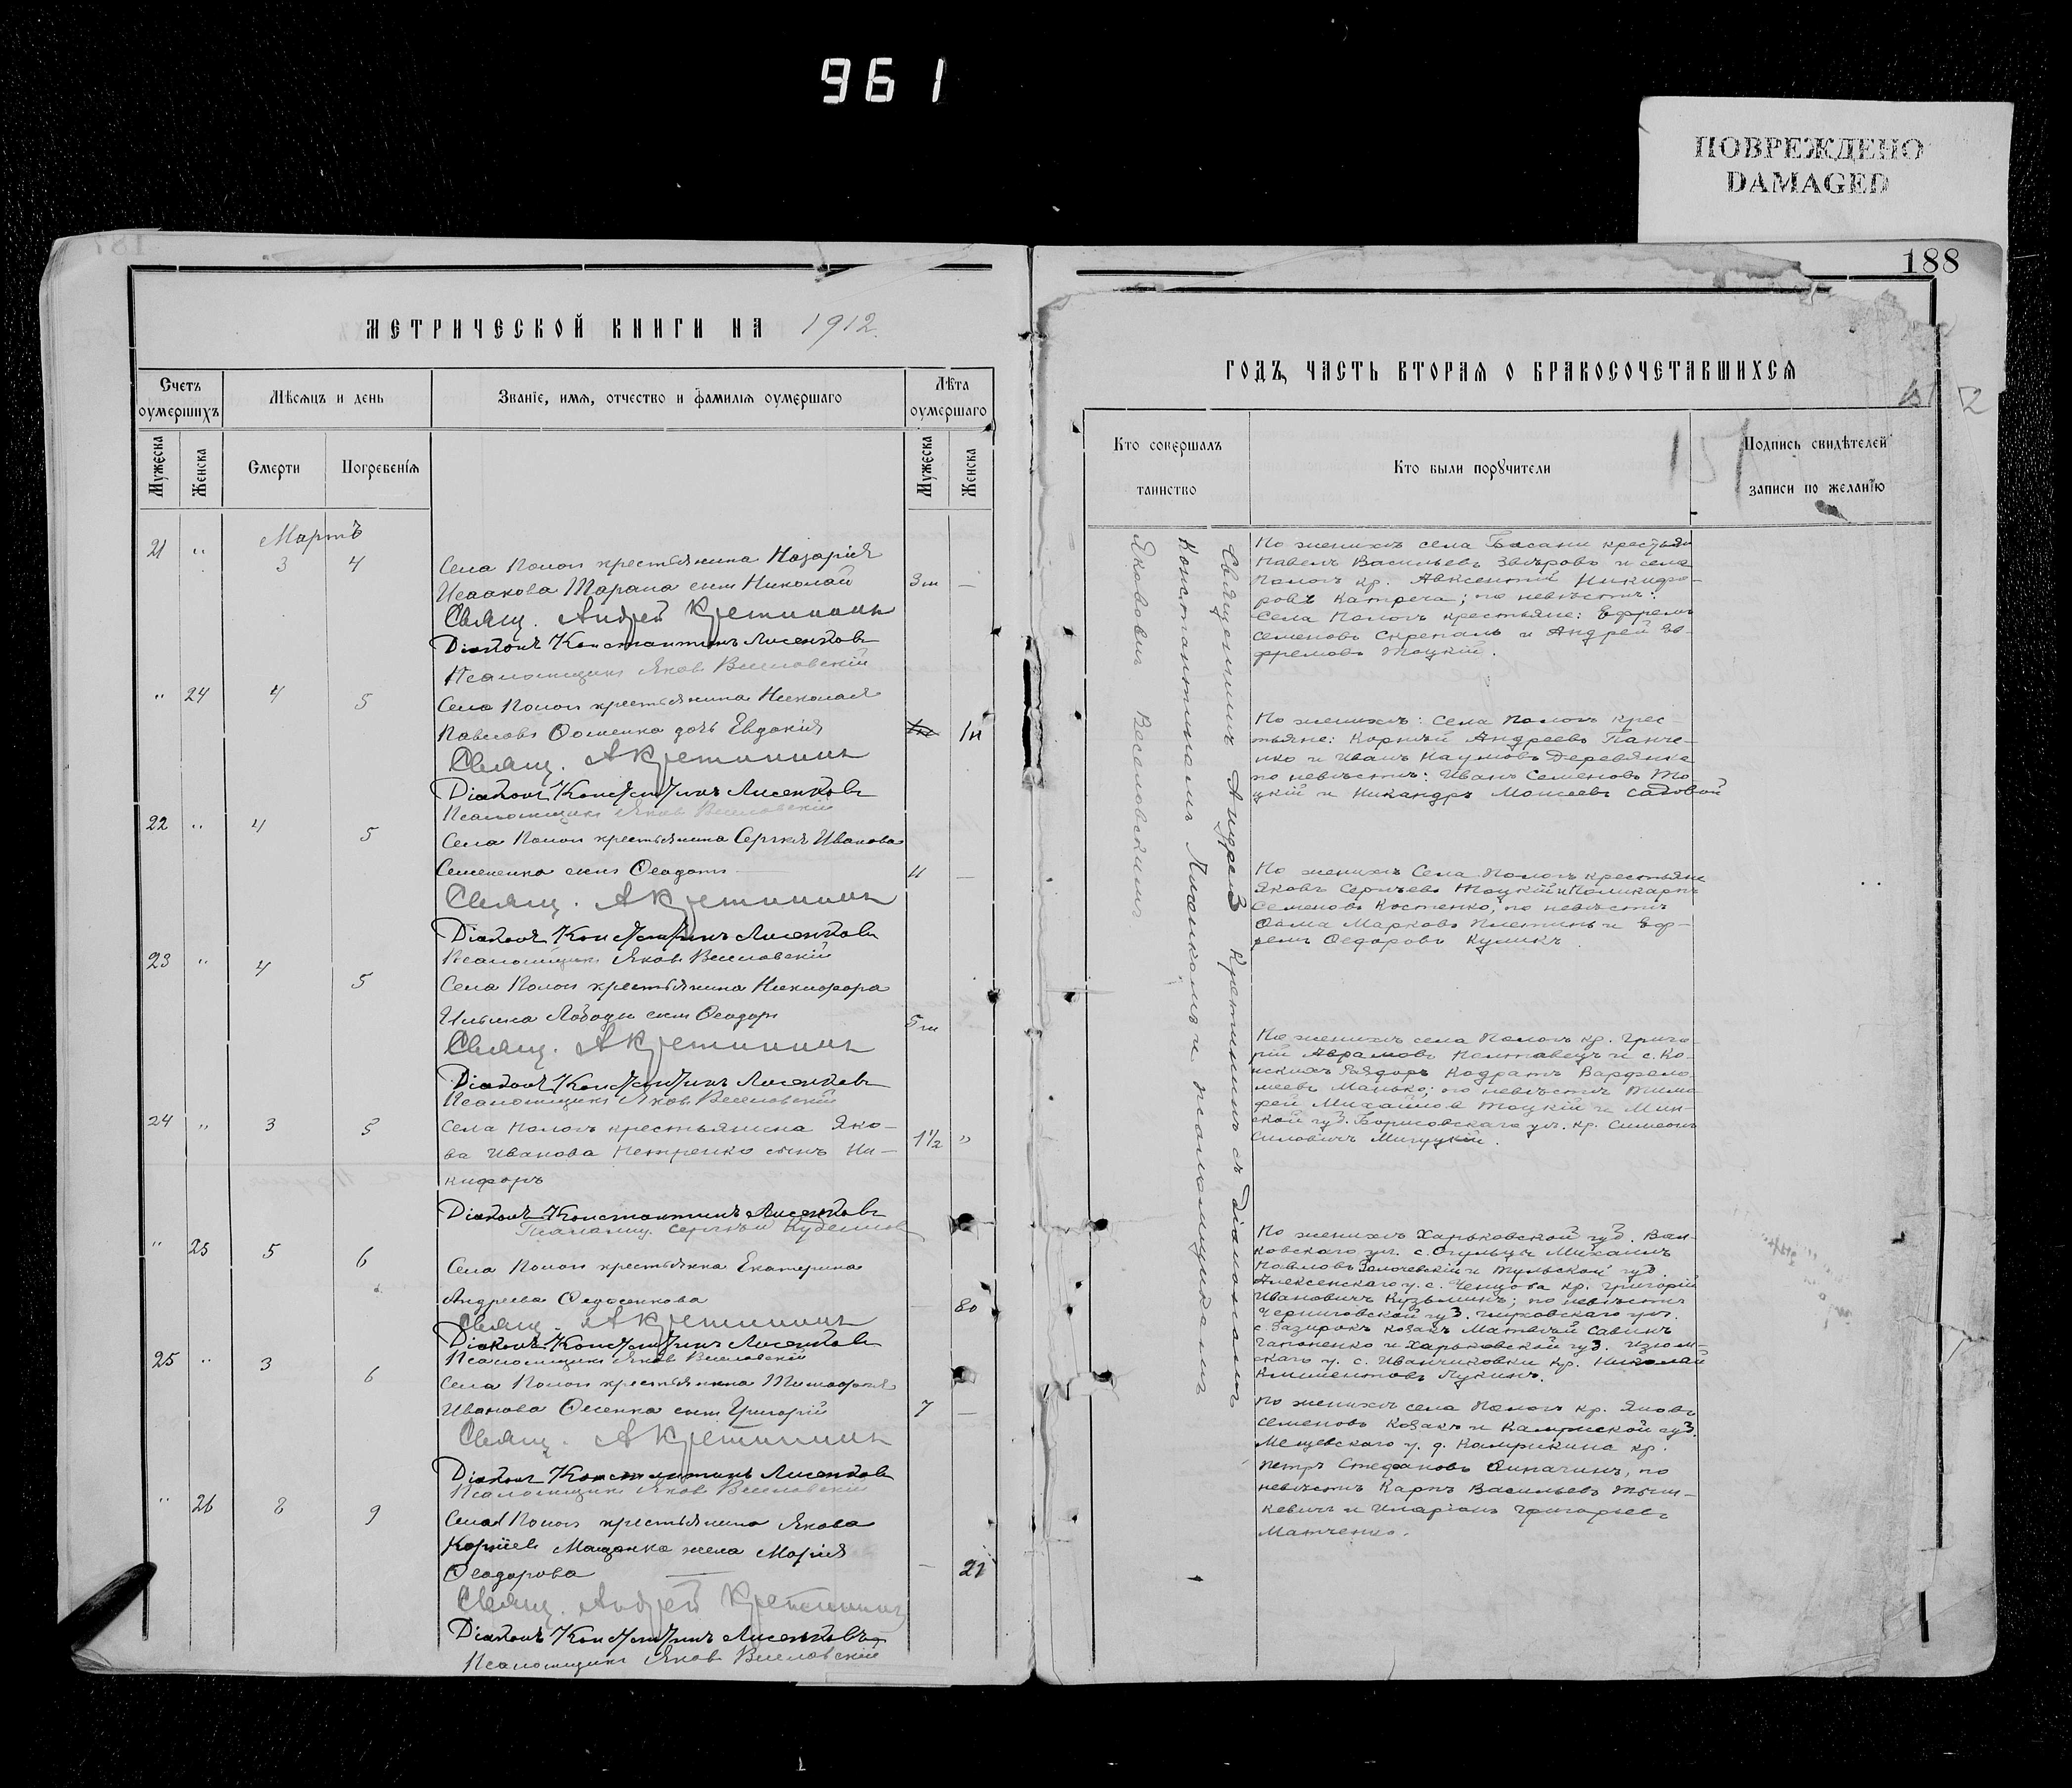 961
ПОВРЕЖДЕНО
DAMAGED
188
МЕТРИЧЕСКОЙ КНИГИ НА 1912
Счетъ оумершихъ
Мѣсяцъ и день
Званіе, имя, отчество и фамилія оумершаго
Лѣта оумершаго
Мужеска
Женска
Смерти
Погребенія
Мужеска
Женска
Мартъ
21 " 3 4 Села Пологъ крестьянина Назарія
Исаакова Тарана сынъ Николай 3 м —
Свящ. Андрей Кретининъ
Діаконъ Константинъ Лисенковъ
Псаломщикъ Яковъ Веселовскій
" 24 4 5 Села Пологъ крестьянина Николая
Павлова Ѳоменка дочь Евдокія 1 н
Свящ. А Кретининъ
Діаконъ Константинъ Лисенковъ
Псаломщикъ Яковъ Веселовскій
22 " 4 5 Села Пологъ крестьянина Сергѣя Иванова
Семененка сынъ Ѳеодотъ 11 —
Свящ. А Кретининъ
Діаконъ Константинъ Лисенковъ
Псаломщикъ Яковъ Веселовскій
23 " 4 5 Села Пологъ крестьянина Никифора
Ильина Лободы сынъ Ѳеодоръ 5 м
Свящ. А Кретининъ
Діаконъ Константинъ Лисенковъ
Псаломщикъ Яковъ Веселовскій
24 " 3 5 Села Пологъ крестьянина Яко-
ва Иванова Петренко сынъ Ни- 1 1/2 "
кифоръ
Діаконъ Константинъ Лисенковъ
Псаломщ. Сергѣй
" 25 5 6 Села Пологъ крестьянка Екатерина
Андреева Ѳедосенкова — 80
Свящ. А Кретининъ
Діаконъ Константинъ Лисенковъ
Псаломщикъ Яковъ Веселовскій
25 " 3 6 Села Пологъ крестьянина Тимоѳея
Иванова Ѳесенка сынъ Григорій 7 —
Свящ. А Кретининъ
Діаконъ Константинъ Лисенковъ
Псаломщикъ Яковъ Веселовскій
" 26 8 9 Села Пологъ крестьянина Якова
Корнѣева Мащенка жена Марія
Ѳеодорова — 21
Свящ. Андрей Кретининъ
Діаконъ Константинъ Лисенковъ
Псаломщикъ Яковъ Веселовскій
ГОДЪ, ЧАСТЬ ВТОРАЯ О БРАКОСОЧЕТАВШИХСЯ
Кто совершалъ таинство
Кто были поручители
Подпись свидѣтелей записи по желанію
Священникъ Андрей Кретининъ съ Діакономъ
Константиномъ Лисенковымъ и псаломщикомъ
Яковомъ Веселовскимъ
По женихѣ села Басани крестьян.
Павелъ Васильевъ Звѣровъ и села
Пологъ кр. Авксентій Никифо-
ровъ Катреча; по невѣстѣ:
Села Пологъ крестьяне: Ефремъ
Семеновъ Скрепаль и Андрей Еф-
фремовъ Тоцкій.
По женихѣ: Села Пологъ крес-
тьяне: Корній Андреевъ Панче-
нко и Иванъ Наумовъ Деревянка
по невѣстѣ: Иванъ Семеновъ То-
цкій и Никандръ Моисеевъ Садовой
По женихѣ Села Пологъ крестьяне
Яковъ Сергѣевъ Тоцкій и Поликарпъ
Семеновъ Костенко, по невѣстѣ
Ѳома Марковъ Плетинь и Еф-
ремъ Ѳедоровъ Куликъ
По женихѣ села Пологъ кр. Григо-
рій Аврамовъ Полтавецъ и с. Ко-
нскихъ Раздоръ Кодратъ Варфоло-
меевъ Манько; по невѣстѣ Тимо
фей Михайловъ Тоцкій и Мин-
ской губ. Борисовскаго уѣз. кр. Симеонъ
Силовичъ
По женихѣ Харьковской губ. Вал-
ковскаго уѣз. с. Огульцы Михаилъ
Павловъ Золочевскій и Тульской губ.
Алексенскаго у. с. Ченцова кр. Григорій
Ивановичъ Кузьминъ; по невѣстѣ
Черниговской губ. Глуховскаго уѣз.
с. Зазирокъ козакъ Матвѣй Савинъ
Гапоненко и Харьковской губ. Изюм-
скаго у. с. Иванчиковки кр. Николай
Климентовъ Лукинъ.
По женихѣ села Пологъ кр. Яковъ
Семеновъ Козакъ и Калужской губ.
Мещевскаго у. д. кр.
Петръ Стефановъ, по
невѣстѣ Карпъ Васильевъ Тыш-
кевичъ и Иларіонъ Григорьевъ
Матченко.